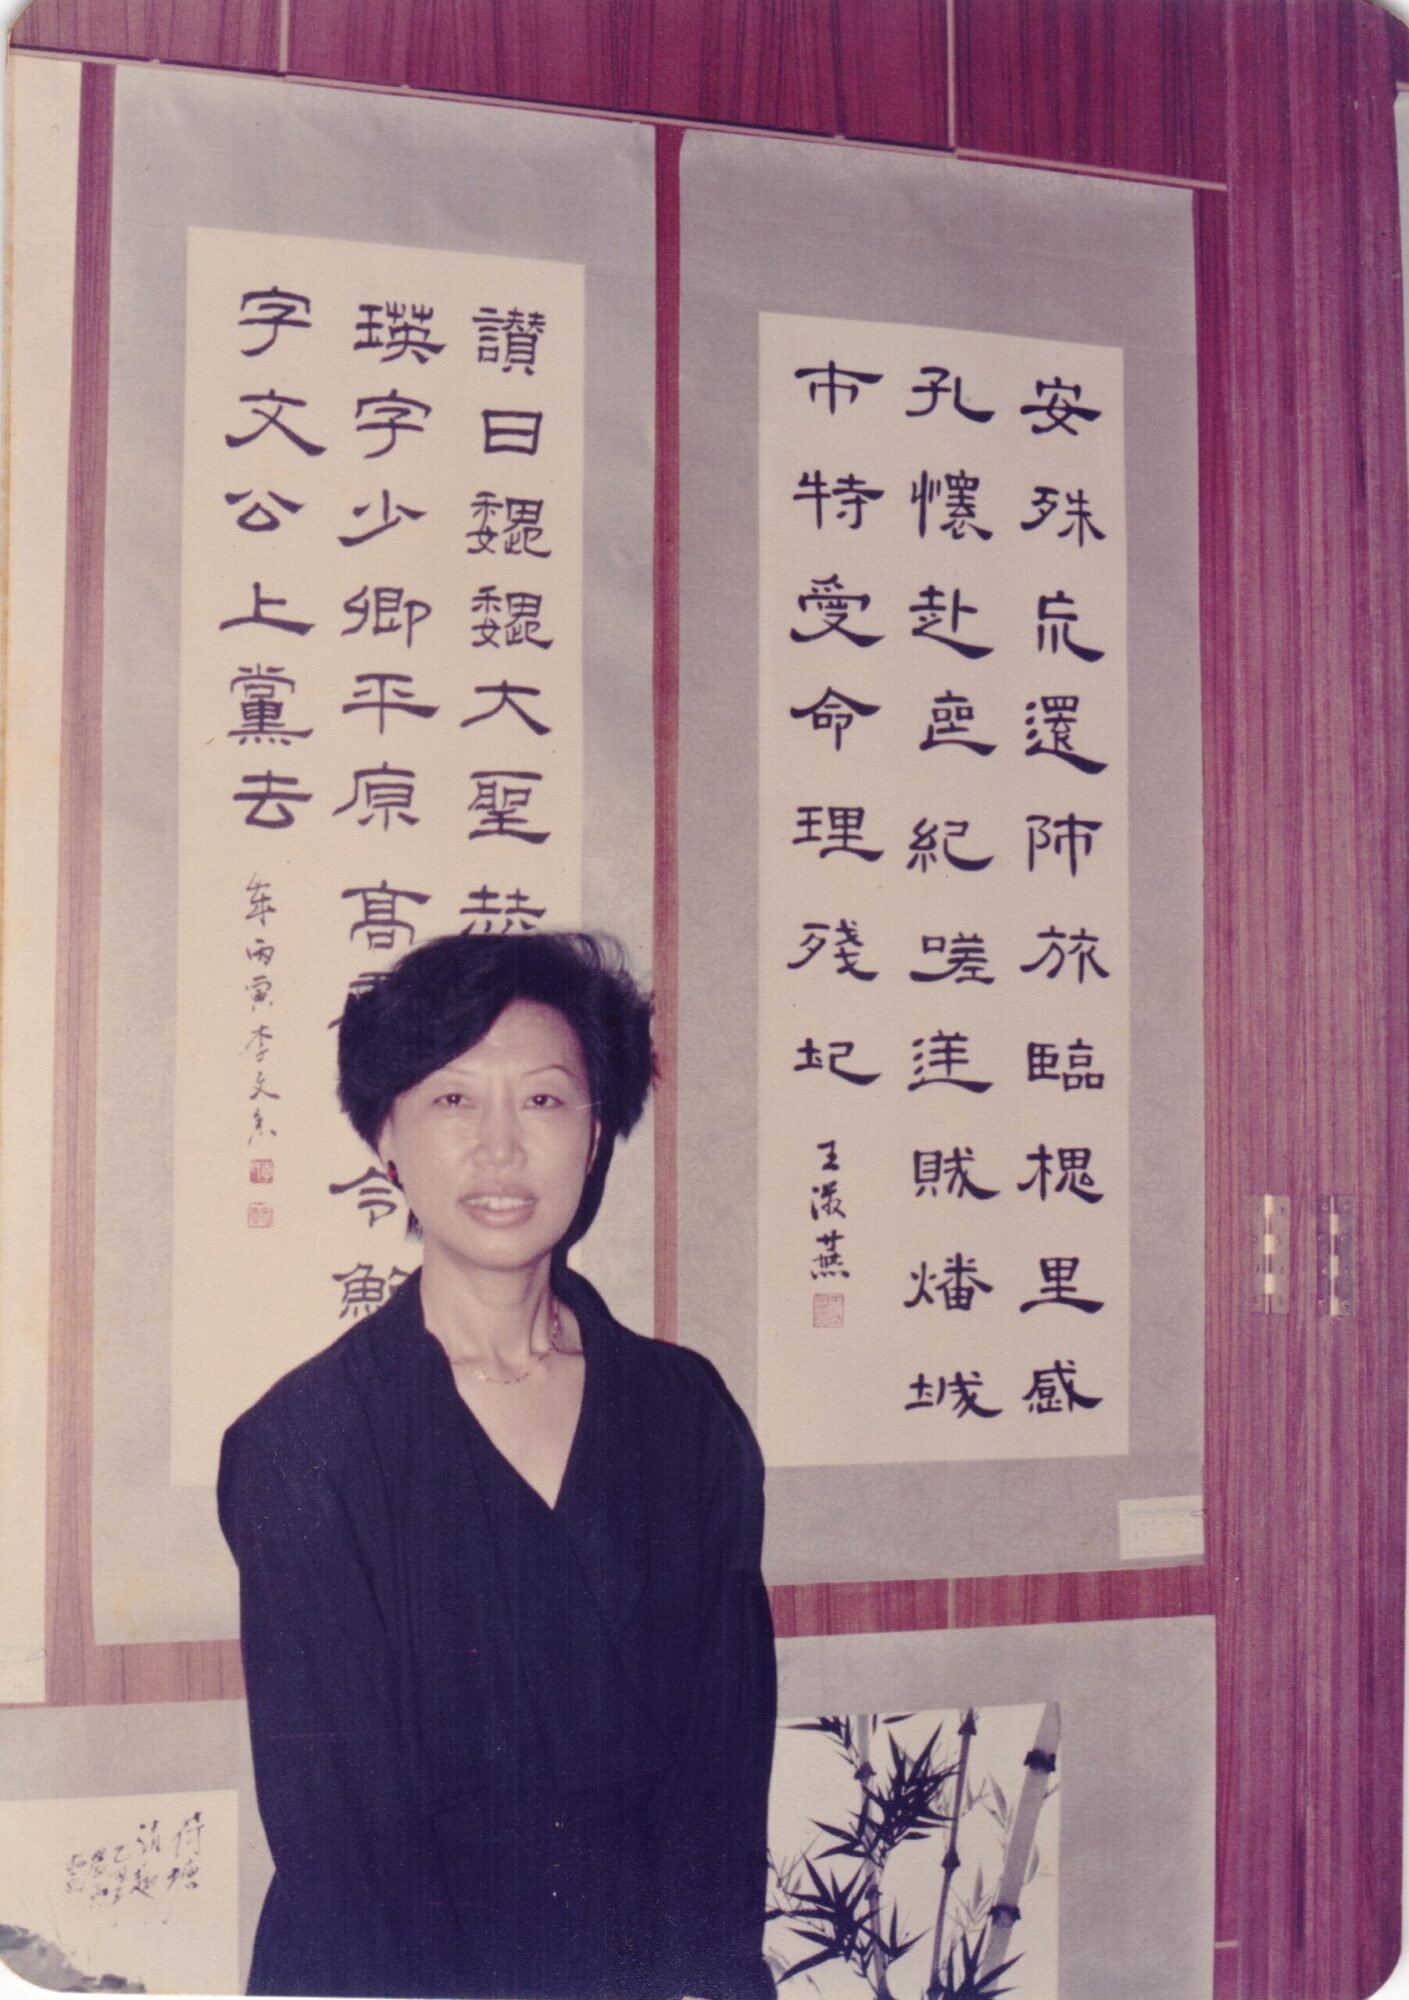 安殊荒還師旅臨槐里感
孔懷赴喪紀嗟逆賊燔城
市特受命理殘圮
王 燕
讚曰魏魏大聖赫
瑛字少卿平原高 令鮑
字文公上黨去
歲丙寅李文
荷塘
清趣